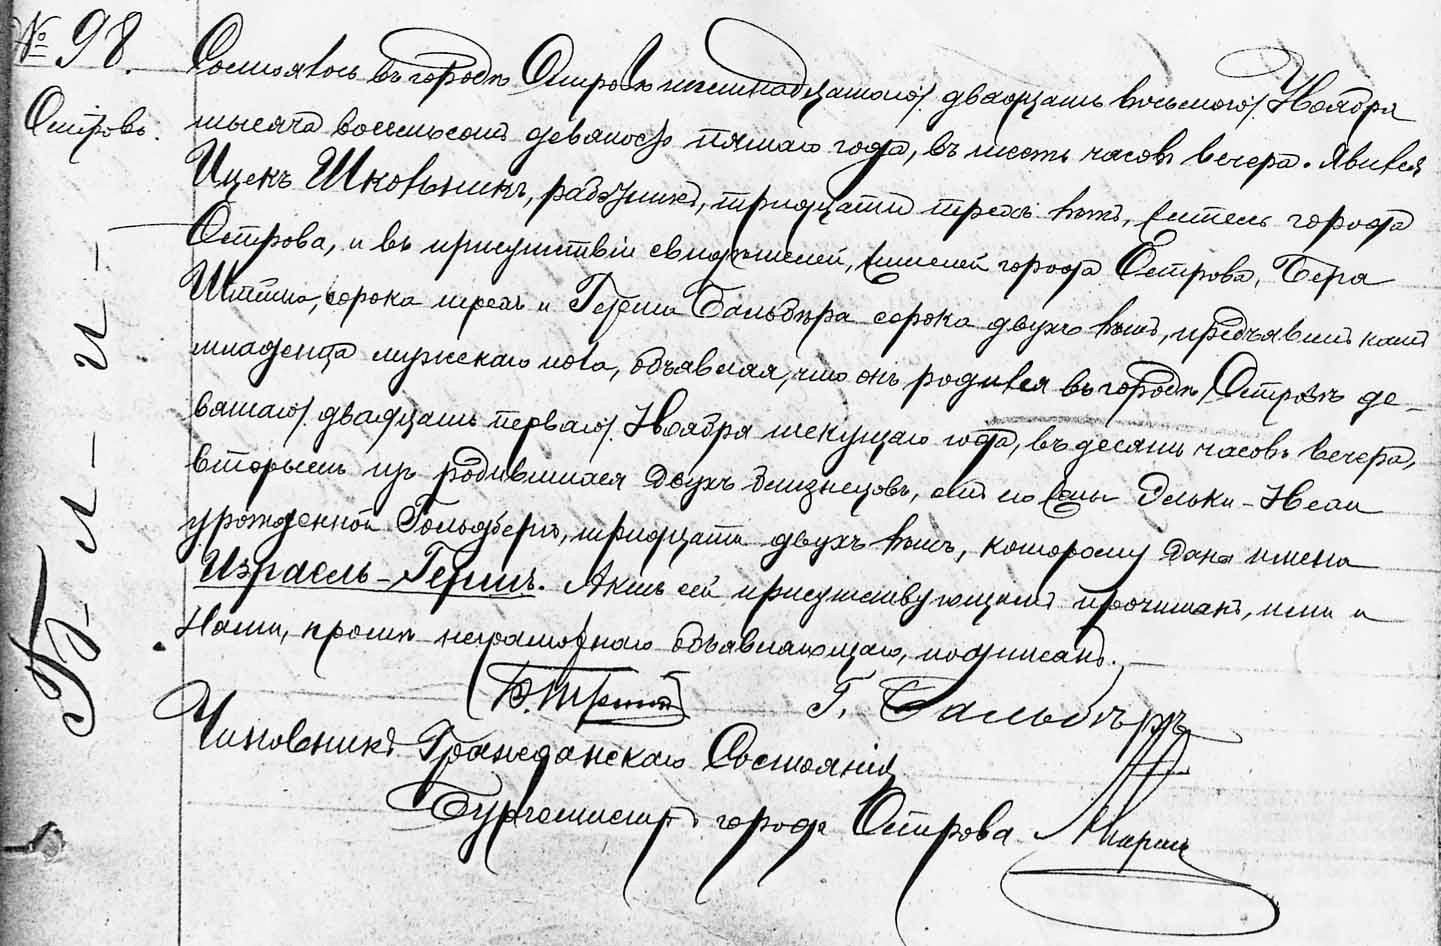 № 98.
Островъ.
Б-л-и-
Состоялось въ городѣ Островѣ шестнадцатого/двадцать восьмого/ Ноября
тысяча восемьсот девяносто пятаго года, въ шесть часовъ вечера. Явился
Ицекъ Школьникъ, работникъ, тридцати трехъ лѣтъ, житель города
Острова, и въ присутствіи свидѣтелей, жителей города Острова, Бера
сорока трехъ и Герша Бальбѣра сорока двухъ лѣтъ, предъявилъ намъ
младенца мужскаго пола, объявляя, что онъ родился въ городѣ Островѣ де-
вятаго/двадцать перваго/ Ноября текущаго года, въ десять часовъ вечера,
вторымъ изъ родившихся двухъ близнецовъ, отъ его жены Эльки-Неси
урожденной Гольдбергъ, тридцати двухъ лѣтъ, которому дано имена
Израель-Гершъ. Актъ сей присутствующимъ прочитанъ, ими и
Нами, кромѣ неграмотнаго объявляющаго, подписанъ.
Г. Бальбѣръ
Чиновникъ Гражданскаго Состоянія
Бургомистръ города Острова